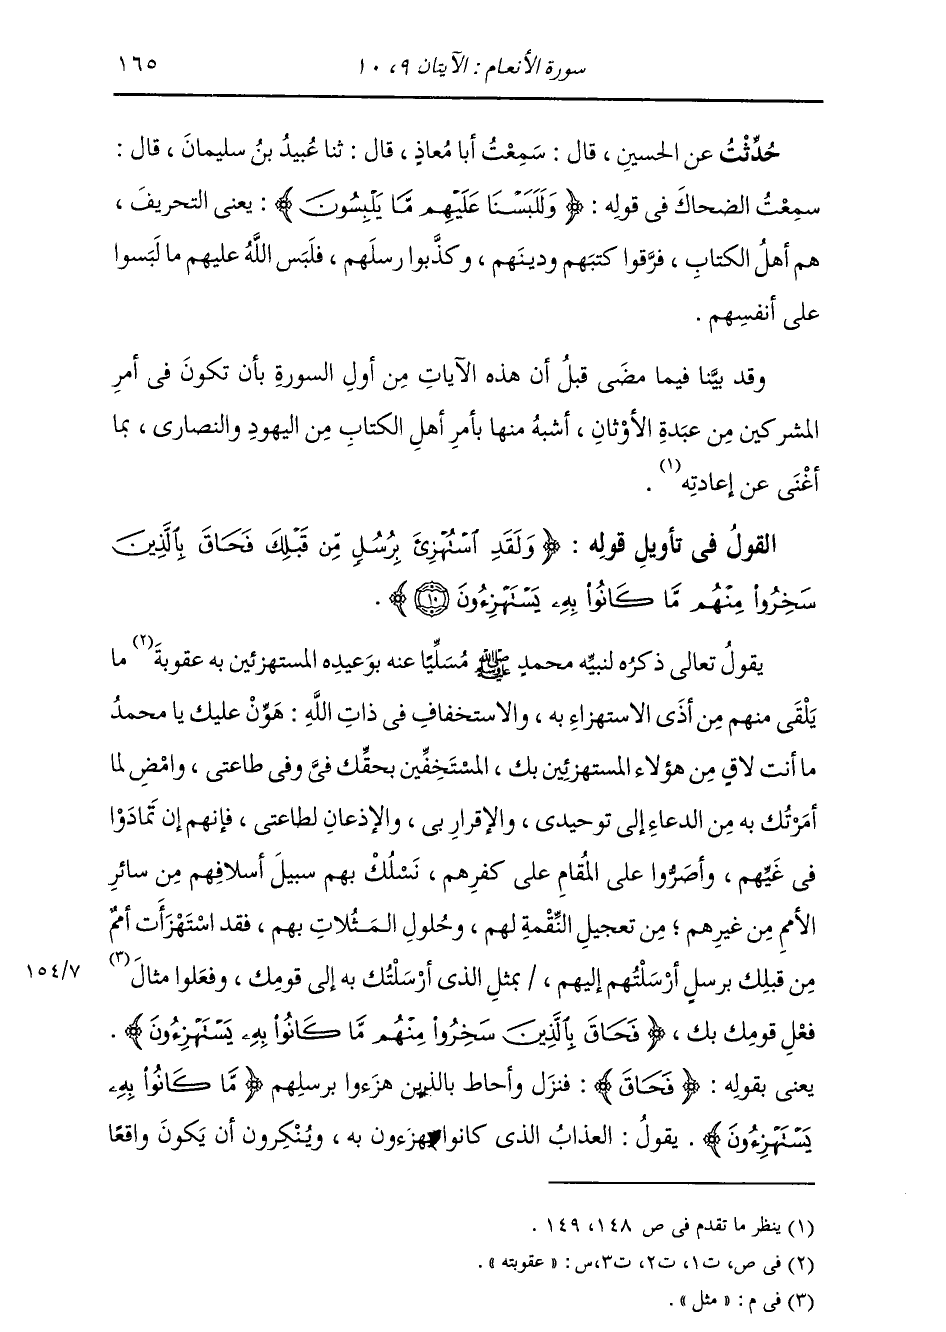 سورة الأنعام : الآيتان ٩ ، ١٠ ١٦٥
حُدِّثْتُ عن الحسينِ ، قال : سَمِعْتُ أبا مُعاذٍ ، قال : ثنا عُبيدُ بنُ سليمانَ ، قال :
سمِعْتُ الضحاكَ فى قولِه : ﴿ وَلَلَبَسْنَا عَلَيْهِم مَّا يَلْبِسُونَ ﴾ : يعنى التحريفَ ،
هم أهلُ الكتابِ ، فرَّقوا كتبَهم ودينَهم ، وكذَّبوا رسلَهم ، فلَبَس اللَّهُ عليهم ما لَبَسوا
على أنفسِهم .
وقد بيَّنا فيما مضَى قبلُ أن هذه الآياتِ مِن أولِ السورةِ بأن تكونَ فى أمرِ
المشركين مِن عبَدةِ الأوْثانِ ، أشبهُ منها بأمرِ أهلِ الكتابِ مِن اليهودِ والنصارى ، بما
أغْنَى عن إعادتِه(١) .
القولُ فى تأويلِ قولِه : ﴿ وَلَقَدِ ٱسْتُهْزِئَ بِرُسُلٍ مِّن قَبْلِكَ فَحَاقَ بِٱلَّذِينَ
سَخِرُواْ مِنْهُم مَّا كَانُواْ بِهِۦ يَسْتَهْزِءُونَ ١٠ ﴾ .
يقولُ تعالى ذكرُه لنبيِّه محمدٍ ﷺ مُسَلِّيًا عنه بوَعيدِه المستهزئين به عقوبةَ(٢) ما
يَلْقَى منهم مِن أذَى الاستهزاءِ به ، والاستخفافِ فى ذاتِ اللَّهِ : هَوِّنْ عليك يا محمدُ
ما أنت لاقٍ مِن هؤلاء المستهزئين بك ، المسْتَخِفِّين بحقِّك فىَّ وفى طاعتى ، وامْضِ لما
أمَرْتُك به مِن الدعاءِ إلى توحيدى ، والإقرارِ بى ، والإذعانِ لطاعتى ، فإنهم إن تَمادَوْا
فى غَيِّهم ، وأصَرُّوا على المُقامِ على كفرِهم ، نَسْلُكْ بهم سبيلَ أسلافِهم مِن سائرِ
الأممِ مِن غيرِهم ؛ مِن تعجيلِ النِّقْمةِ لهم ، وحُلولِ المَثُلاتِ بهم ، فقد اسْتَهْزَأَت أممٌ
مِن قبلِك برسلٍ أرْسَلْتُهم إليهم ، / بمثلِ الذى أرْسَلْتُك به إلى قومِك ، وفعَلوا مثالَ(٣) ١٥٤/٧
فعْلِ قومِك بك ، ﴿ فَحَاقَ بِٱلَّذِينَ سَخِرُواْ مِنْهُم مَّا كَانُواْ بِهِۦ يَسْتَهْزِءُونَ ﴾ .
يعنى بقولِه : ﴿ فَحَاقَ ﴾ : فنزَل وأحاط بالذين هزَءوا برسلِهم ﴿ مَّا كَانُواْ بِهِۦ
يَسْتَهْزِءُونَ ﴾ . يقولُ : العذابُ الذى كانوا يهزَءون به ، ويُنْكِرون أن يَكونَ واقعًا
(١) ينظر ما تقدم فى ص ١٤٨، ١٤٩ .
(٢) فى ص، ت١، ت٢، ت٣،س : « عقوبته » .
(٣) فى م : « مثل » .